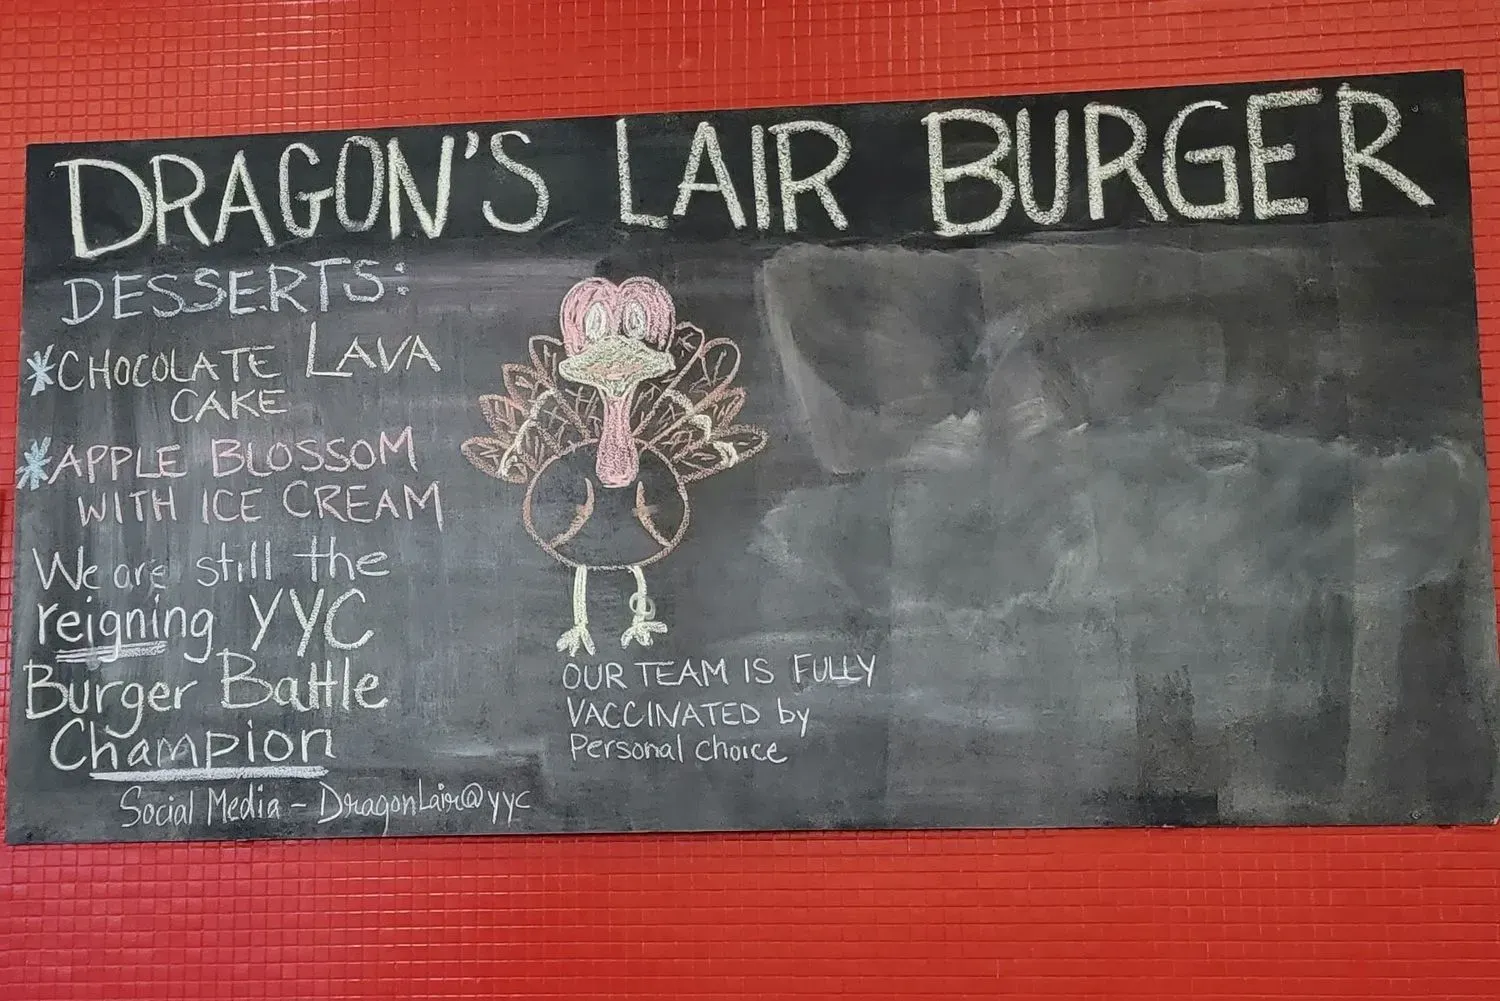 DRAGON'S LAIR BURGER
DESSERTS:
*CHOCOLATE LAVA
CAKE
*APPLE BLOSSOM
WITH ICE CREAM
We are still the
reigning YYC
Burger Battle
Champion
Social Media - DragonLair@yyc
OUR TEAM IS FULLY
VACCINATED by
Personal Choice